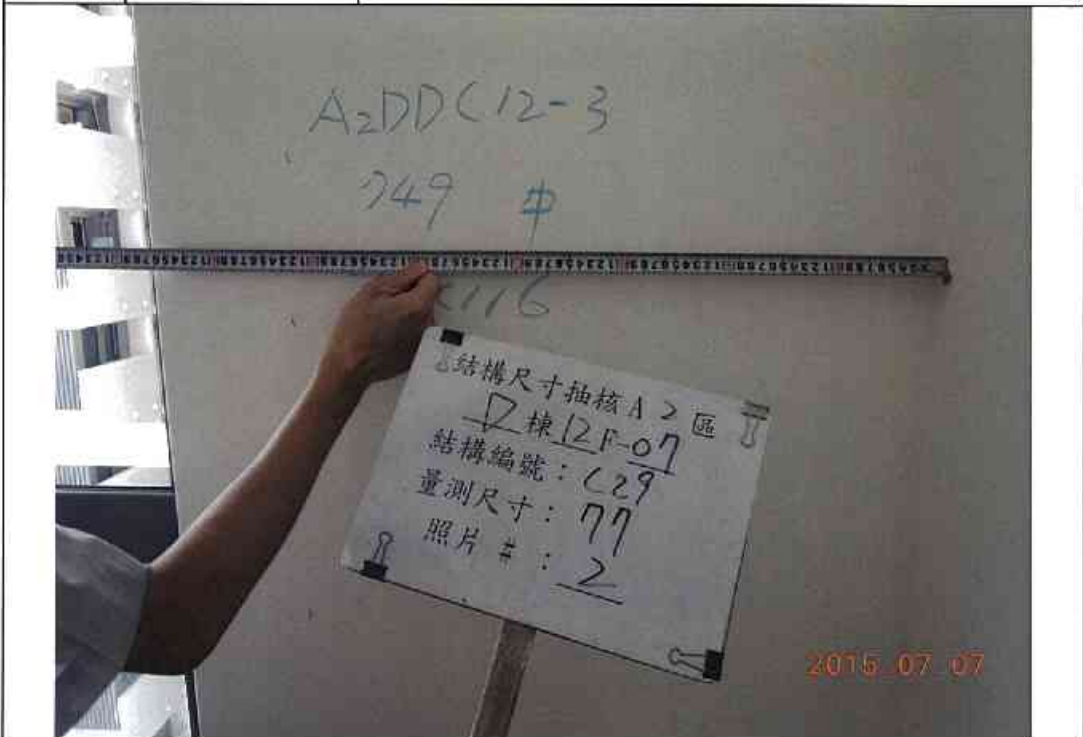 A2DDC12-3
749 中
x116
結構尺寸抽核A2區
D棟12F-07
結構編號:C29
量測尺寸:77
照片#:2
2015 07 07